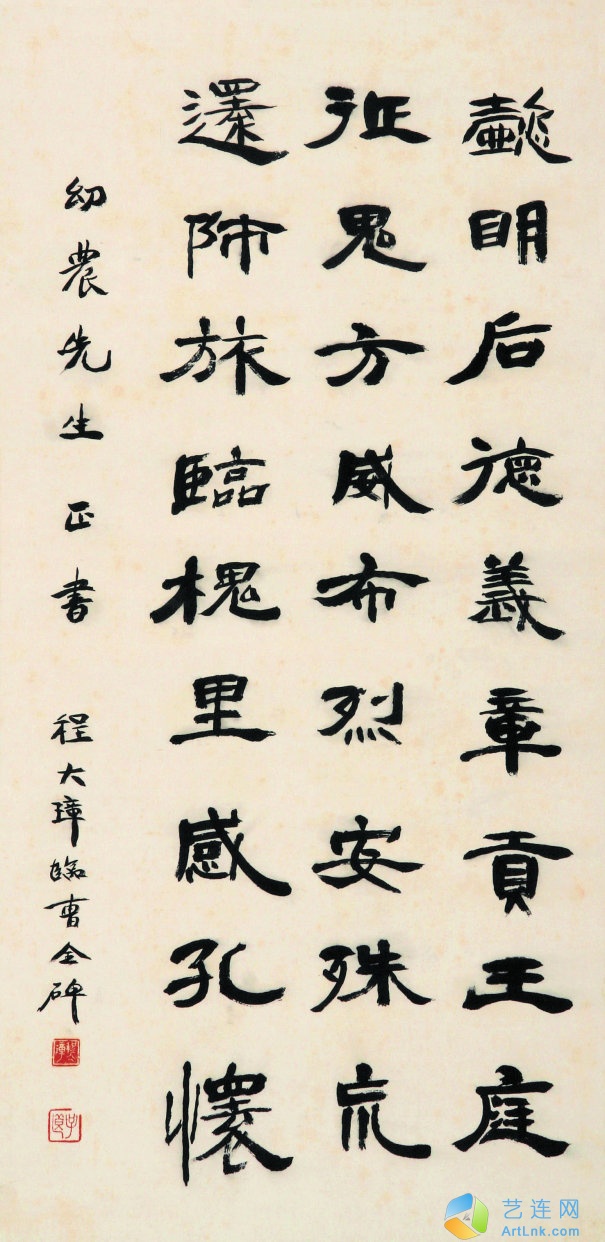 懿明后德義章貢王庭
征鬼方威布烈安殊巟
還師旅臨槐里感孔懷
幼農先生正書 程大璋臨曹全碑
艺连网
ArtLnk.com